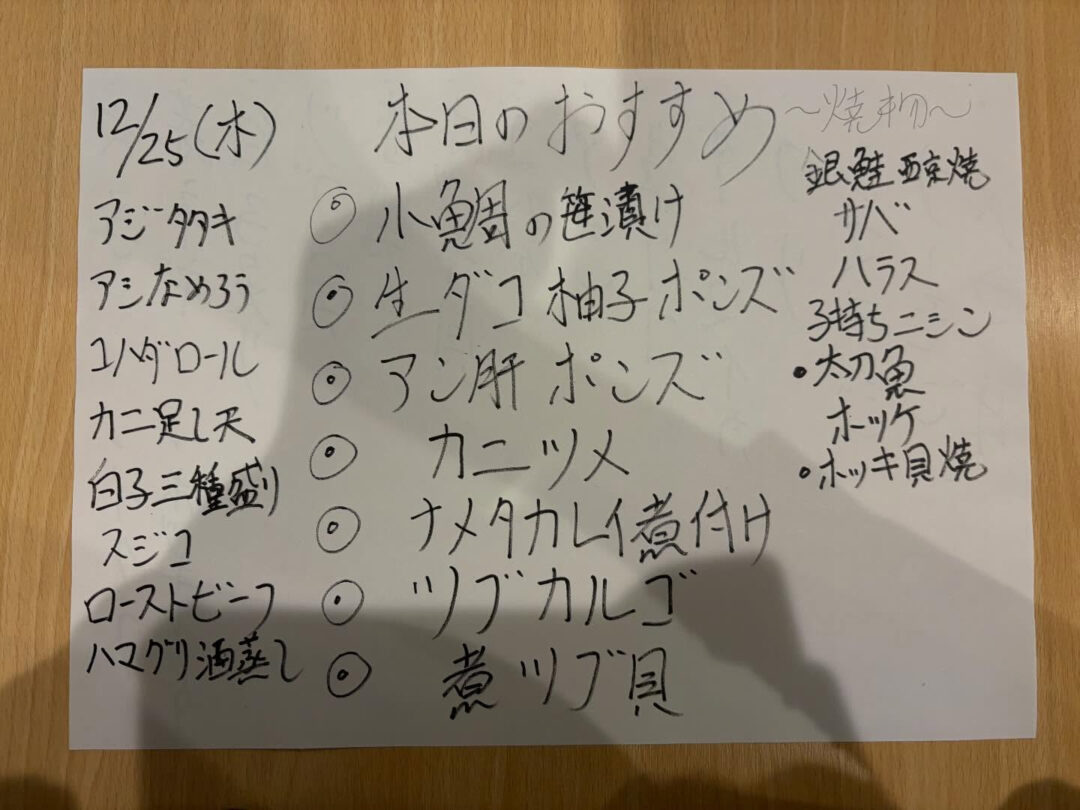 12/25(木)
本日のおすすめ
アジタタキ
アジなめろう
コハダロール
カニ足し天
白子三種盛り
スジコ
ローストビーフ
ハマグリ酒蒸し
◎小鯛の笹漬け
◎生ダコ柚子ポンズ
◎アン肝ポンズ
◎カニツメ
◎ナメタカレイ煮付け
◎ツブカルゴ
◎煮ツブ貝
〜焼き物〜
銀鮭西京焼
サバ
ハラス
子持ちニシン
•太刀魚
ホッケ
•ホッキ貝焼